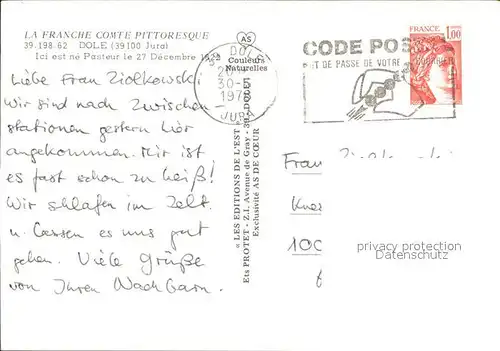 LA FRANCHE COMTÉ PITTORESQUE
39.198.62 DOLE (39100 Jura)
Ici est né Pasteur le 27 Décembre
AS
Couleurs
Naturelles
DOLE
30-5
197
JURA
CODE POS
T DE PASSE DE VOTRE COURRIER
FRANCE
1,00
Liebe Frau Ziolkowski
Wir sind nach Zwischen
stationen gestern hier
angekommen. Mir ist
es fast schon zu heiß!
Wir schlafen im Zelt
u. lassen es uns gut
gehen. Viele Grüße
von Ihren Nachbarn.
« LES EDITIONS DE L'EST »
Ets PROTET - Z.I. Avenue de Gray - 39-DOLE
Exclusivité AS DE CŒUR
Frau
100
privacy protection
Datenschutz